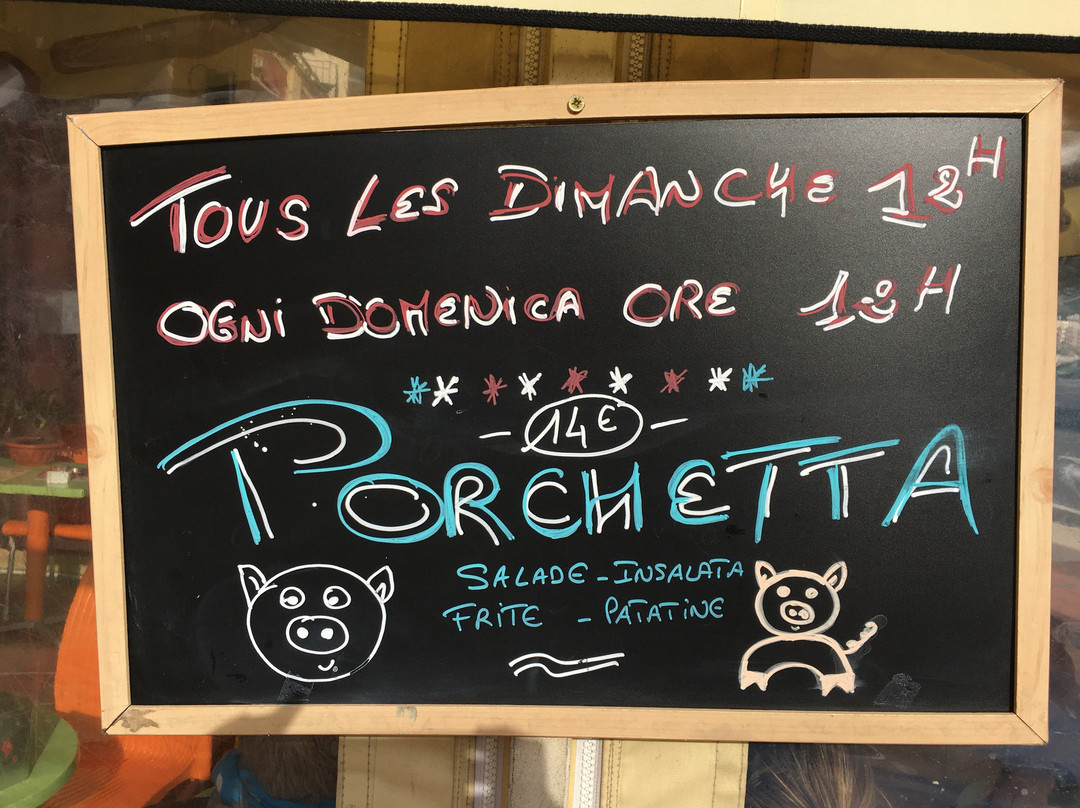 TOUS LES DIMANCHE 12H
OGNI DOMENICA ORE 12H
14€
PORCHETTA
SALADE - INSALATA
FRITE - PATATINE